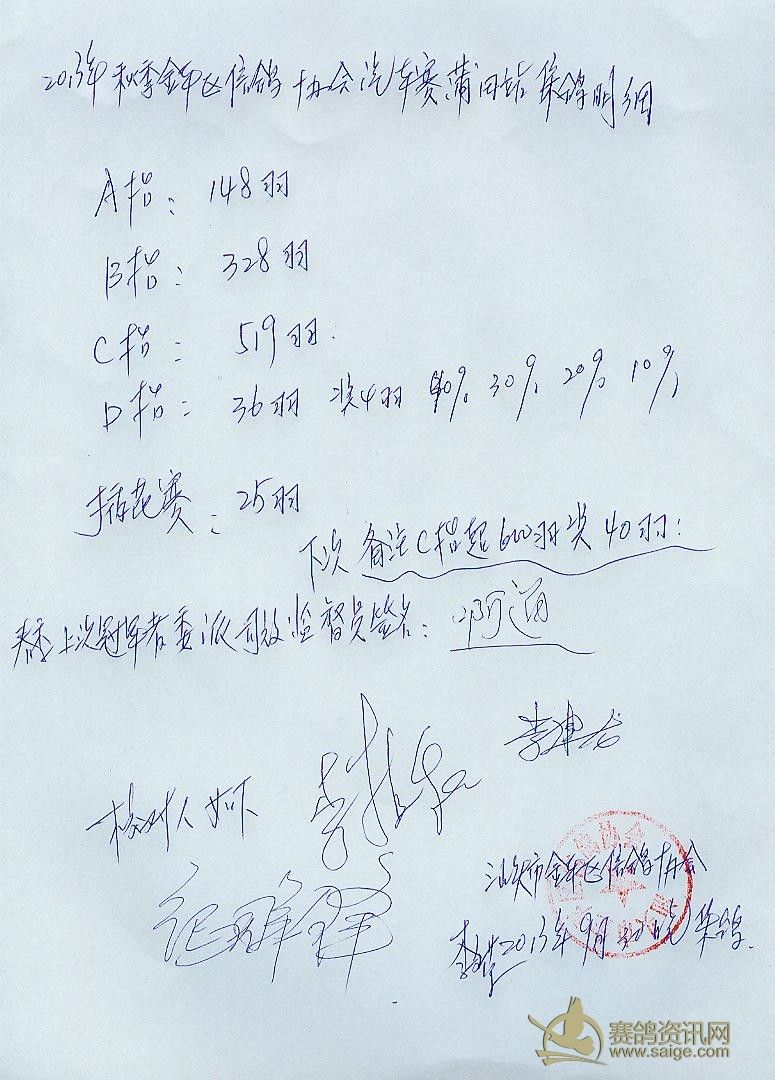 2013年秋季金平区信鸽协会汽车赛莆田站集鸽明细
A指: 148羽
B指: 328羽
C指: 519羽.
D指: 36羽 奖4羽 40%, 30%, 20%, 10%,
插花赛: 25羽
下次备注C指超600羽奖40羽:
上次冠军者委派司放监督员签名: 阿通
李建龙
核对人如下
汕头市金平区信鸽协会
2013年9月30晚集鸽.
赛鸽资讯网
www.saige.com